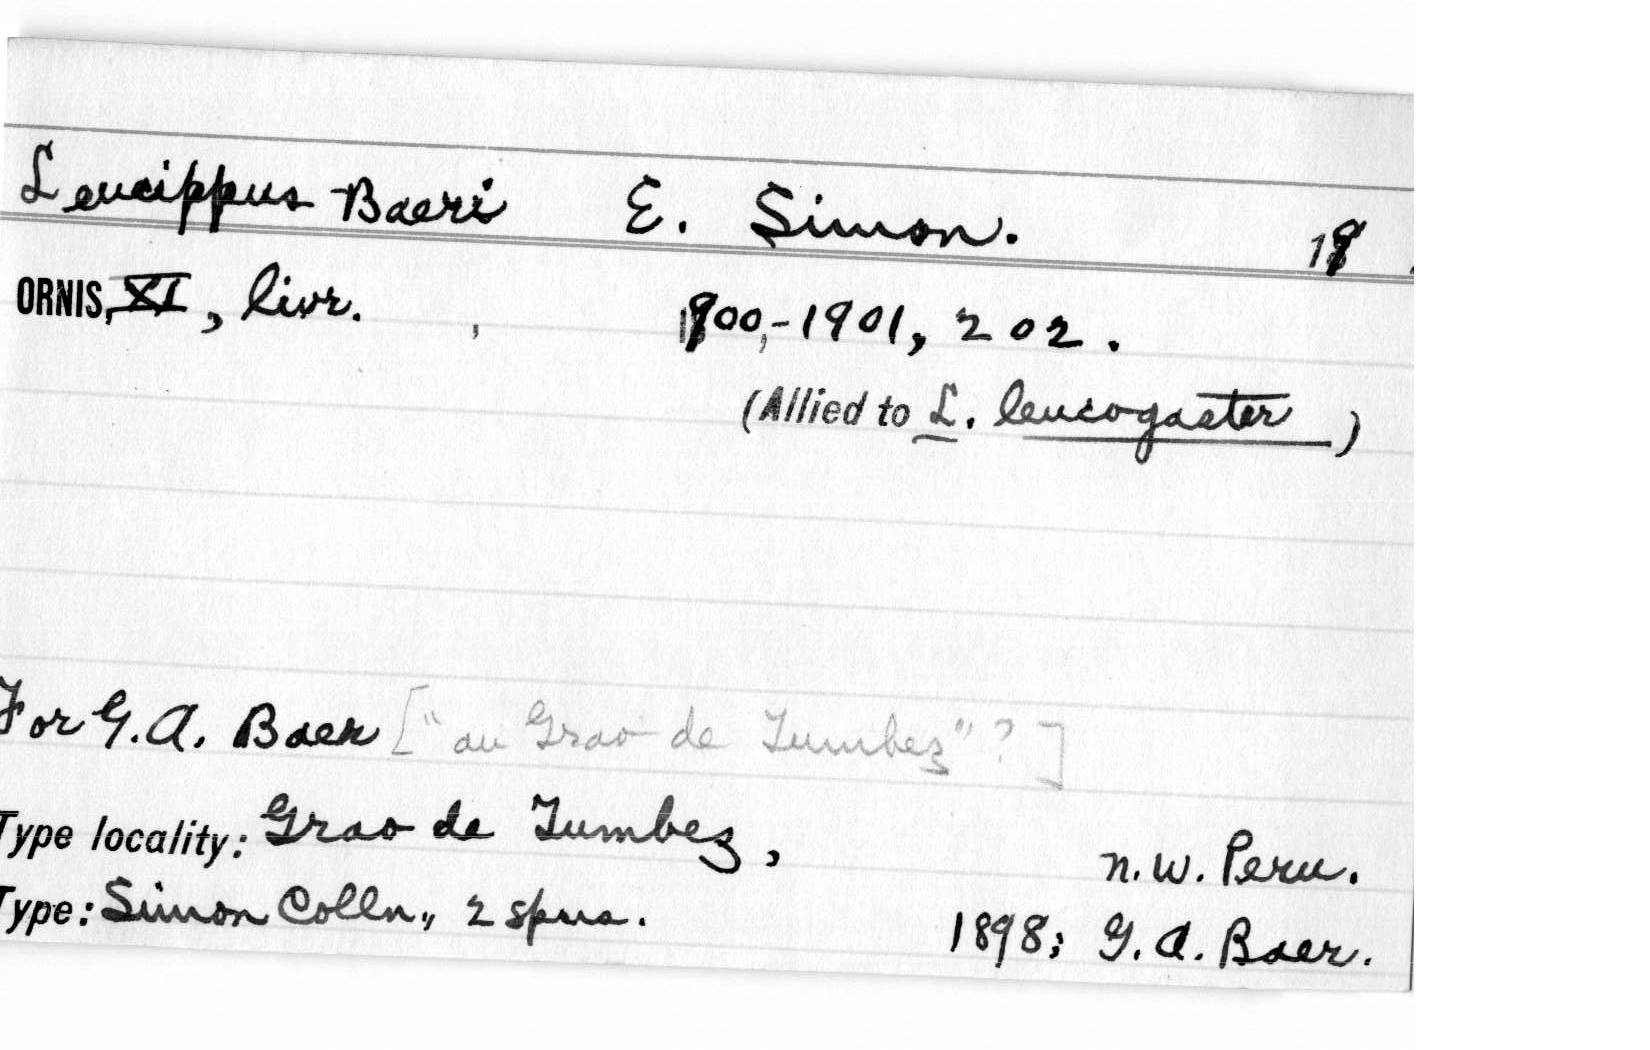 Leucippus Baeri E. Simon. 19
ORNIS, XI, livr. , 1900,-1901, 202.
(Allied to L. leucogaster)
For G. A. Baer ["au Grao de Tumbez"?]
Type locality: Grao de Tumbez, n.w. Peru.
Type: Simon Colln., 2 spms. 1898; G. A. Baer.